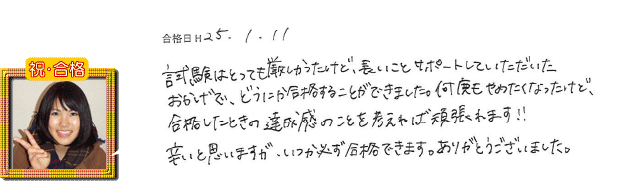 合格日H25.1.11
祝・合格
試験はとっても厳しかったけど、長いことサポートしていただいた
おかげで、どうにか合格することができました。何度もやめたくなったけど、
合格したときの達成感のことを考えれば頑張れます!!
辛いと思いますが、いつか必ず合格できます。ありがとうございました。